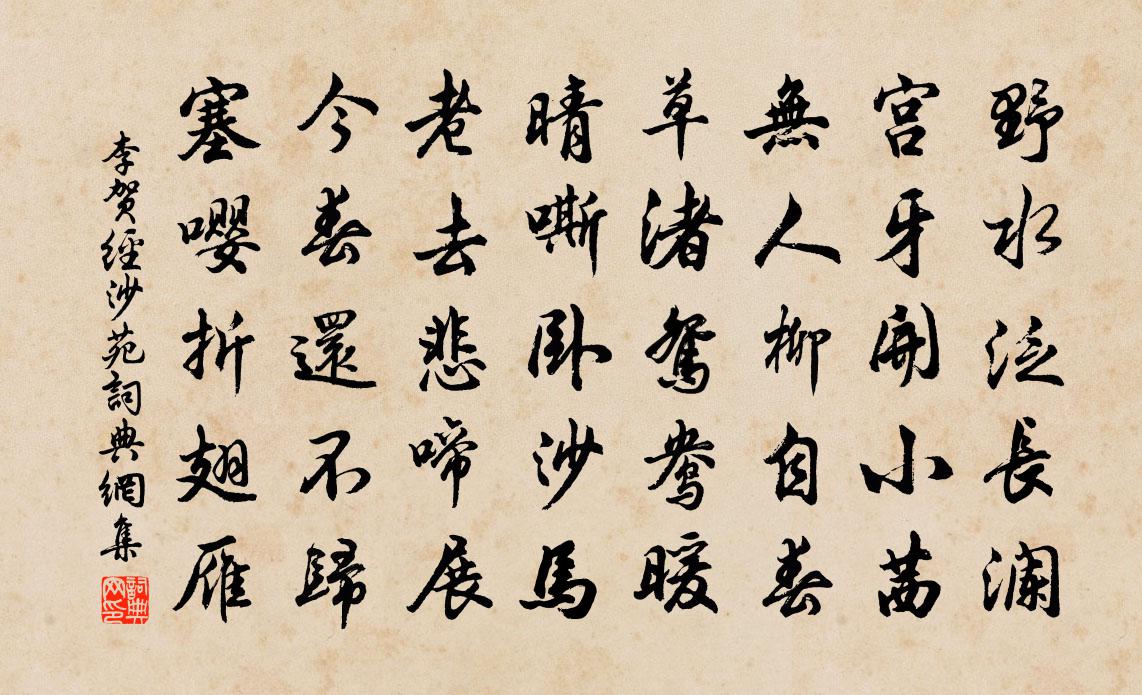 野水泛長瀾
宮牙開小茜
無人柳自春
草渚鴛鴦暖
晴嘶卧沙馬
老去悲啼展
今春還不歸
塞嚶折翅雁
李賀經沙苑詞典網集
詞典网印